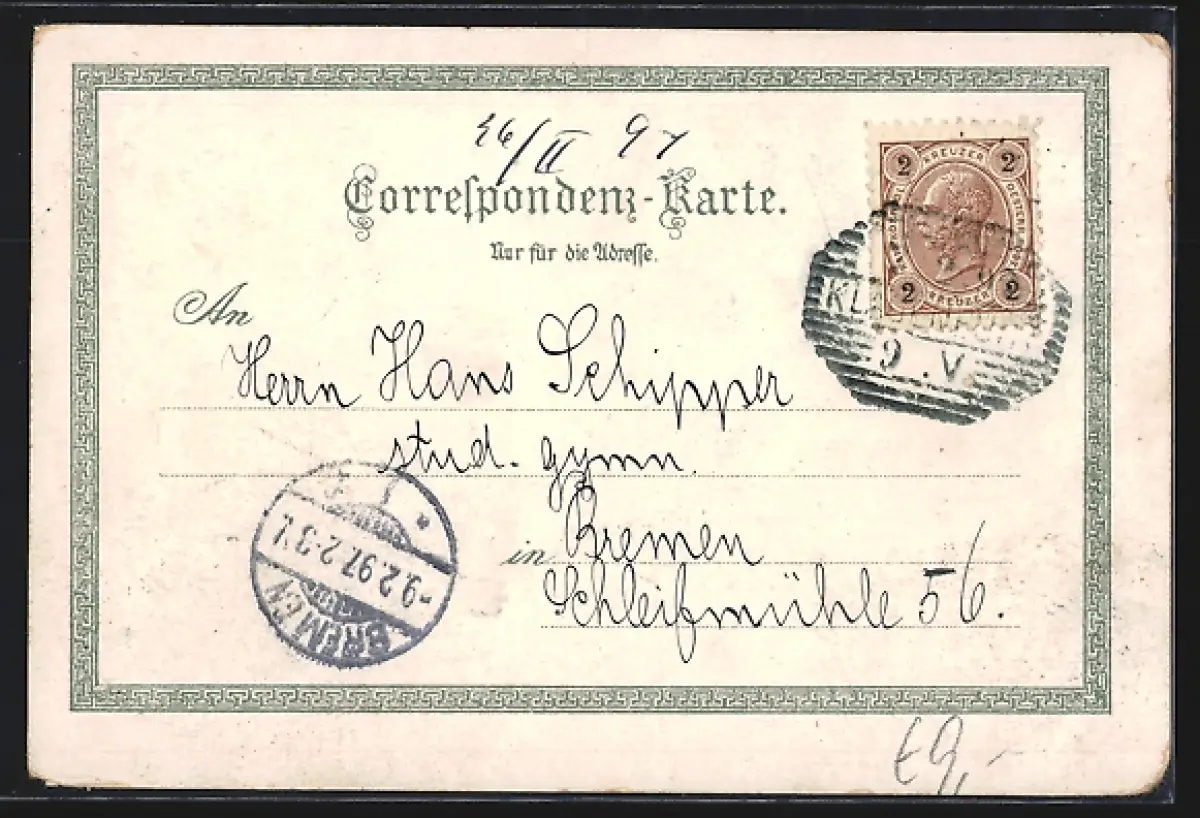 26/II 97
Correspondenz-Karte.
Nur für die Adresse.
An
Herrn Hans Schipper
stud. gymn.
in Bremen
Schleifmühle 56.
2 KREUZER 2
2 KREUZER 2
9 . V
BREMEN
9.2.97.2-3 N.
€9,-